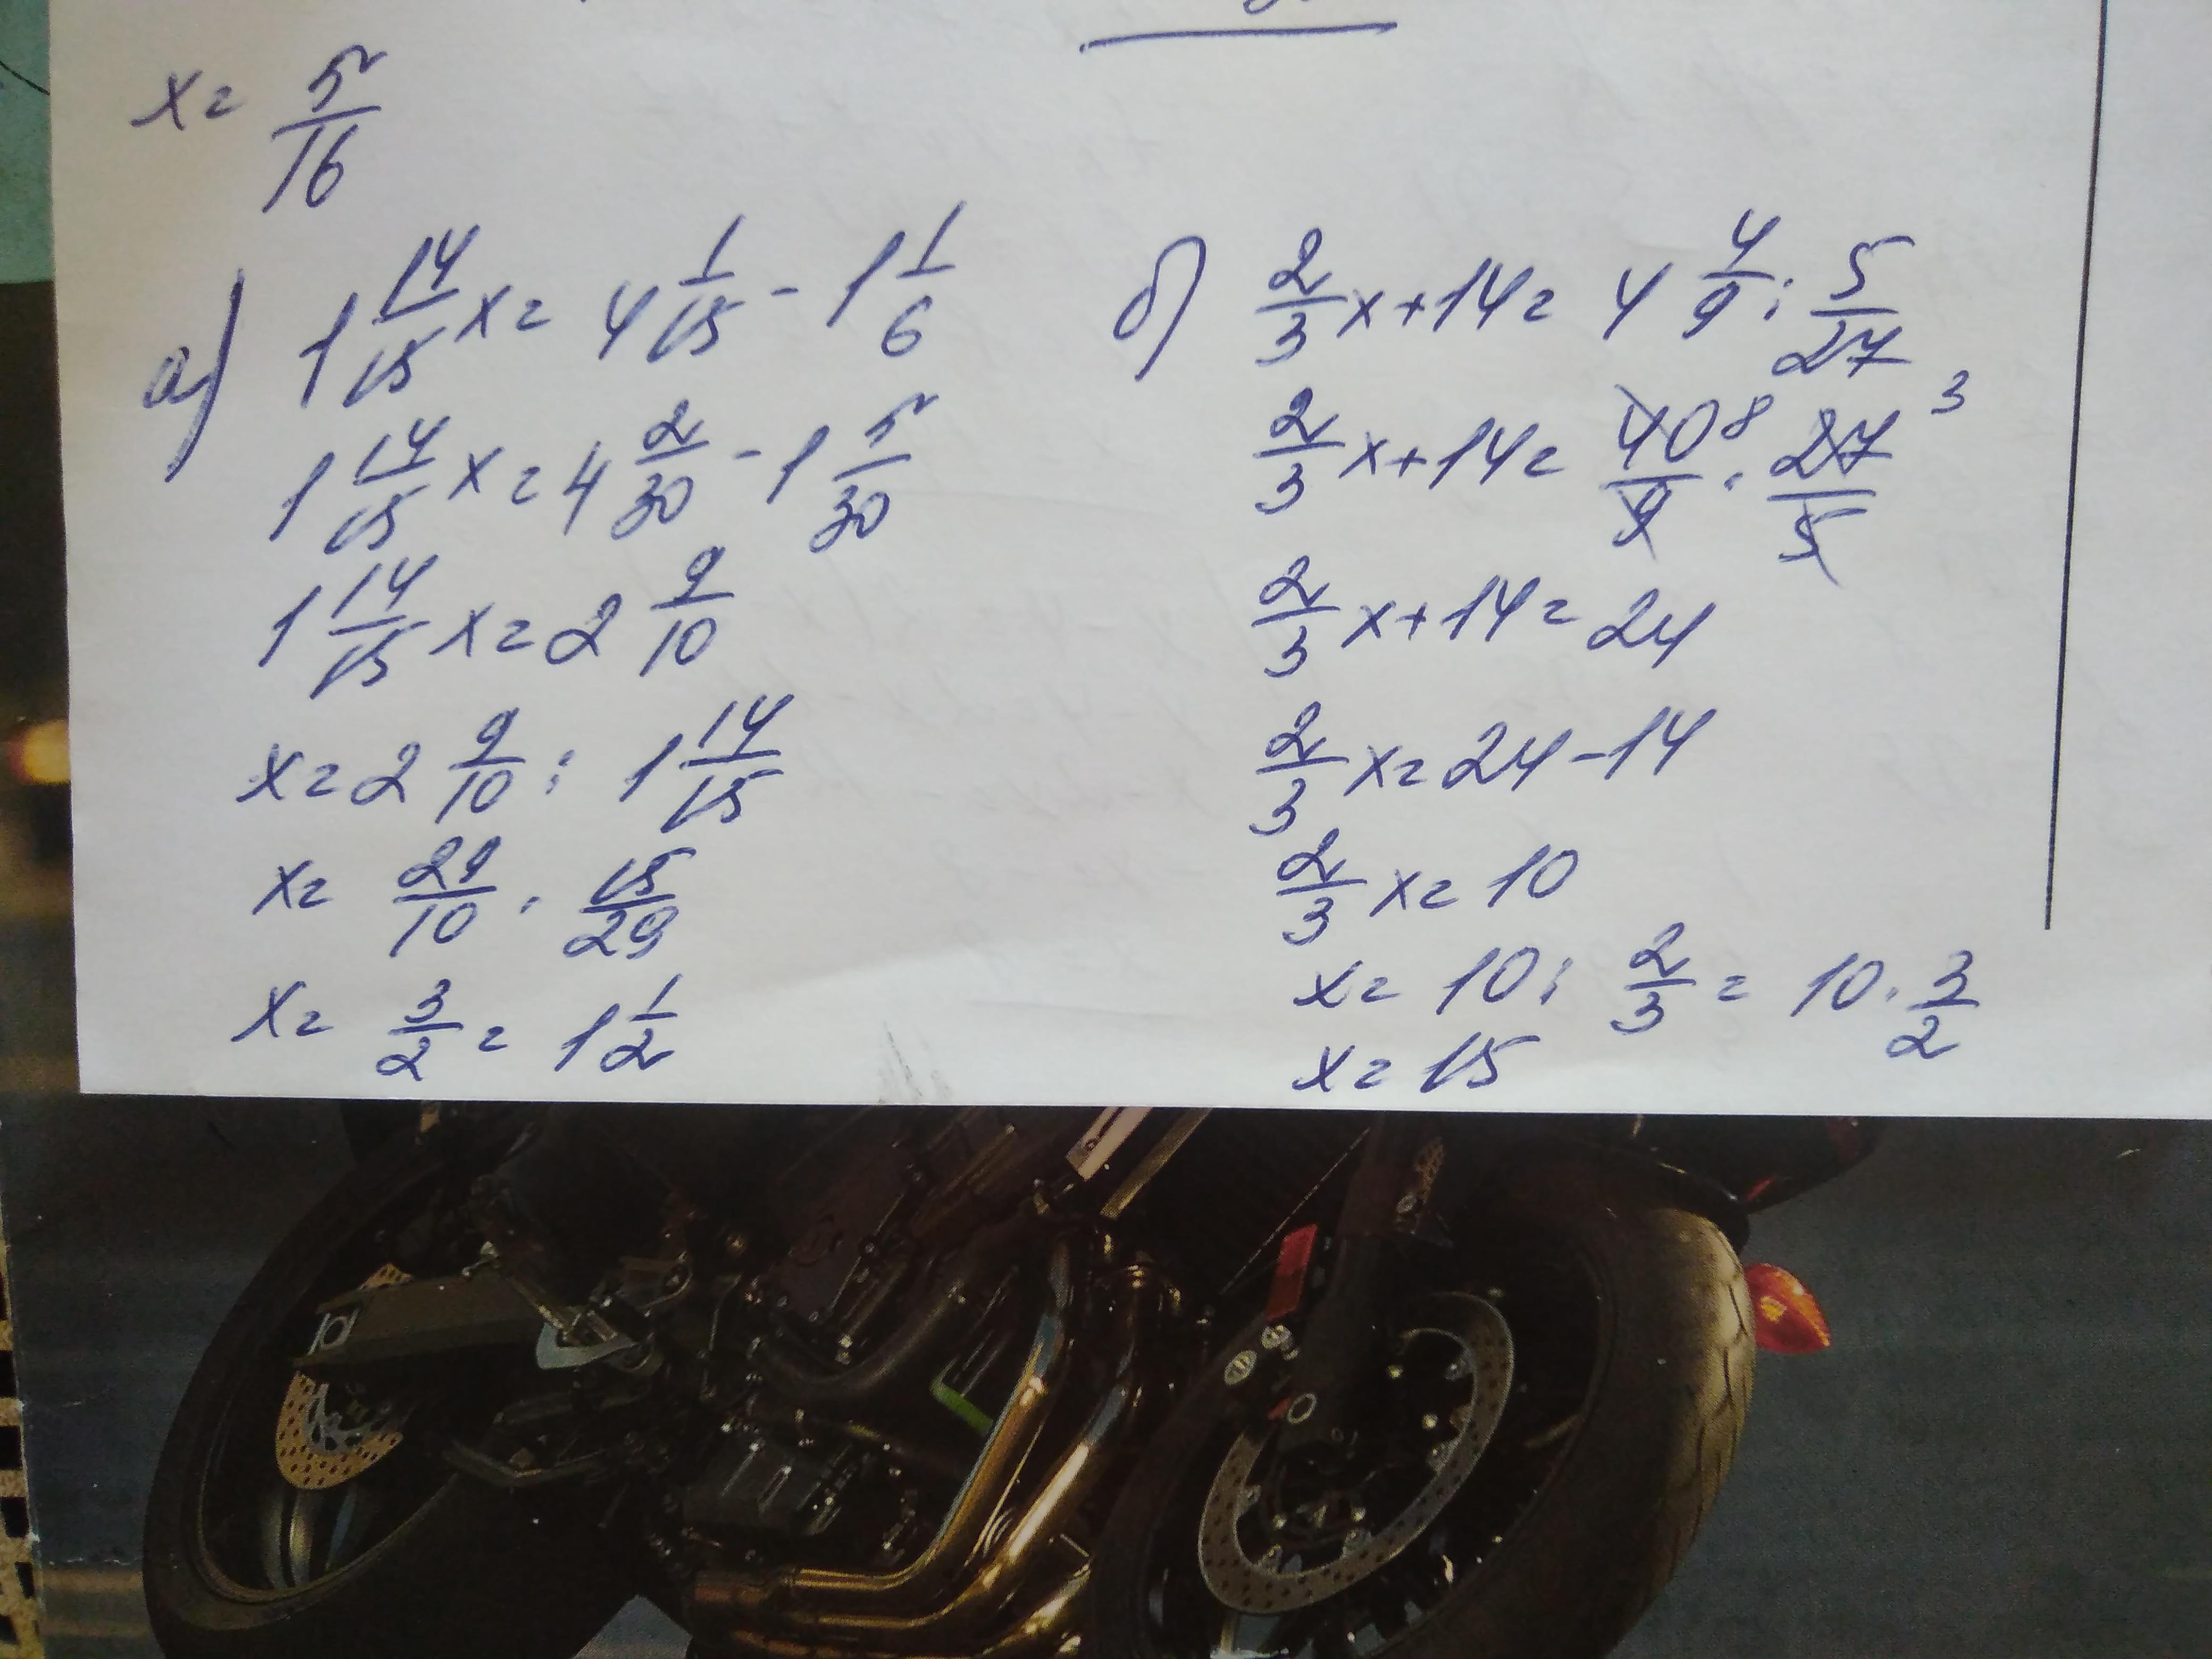 x = 5/16
а) 1 14/15 x = 4 1/15 - 1 1/6
1 14/15 x = 4 2/30 - 1 5/30
1 14/15 x = 2 9/10
x = 2 9/10 : 1 14/15
x = 29/10 · 15/29
x = 3/2 = 1 1/2
б) 2/3 x + 14 = 4 4/9 : 5/27
2/3 x + 14 = 40 8/9 · 27 3/5
2/3 x + 14 = 24
2/3 x = 24 - 14
2/3 x = 10
x = 10 : 2/3 = 10 · 3/2
x = 15